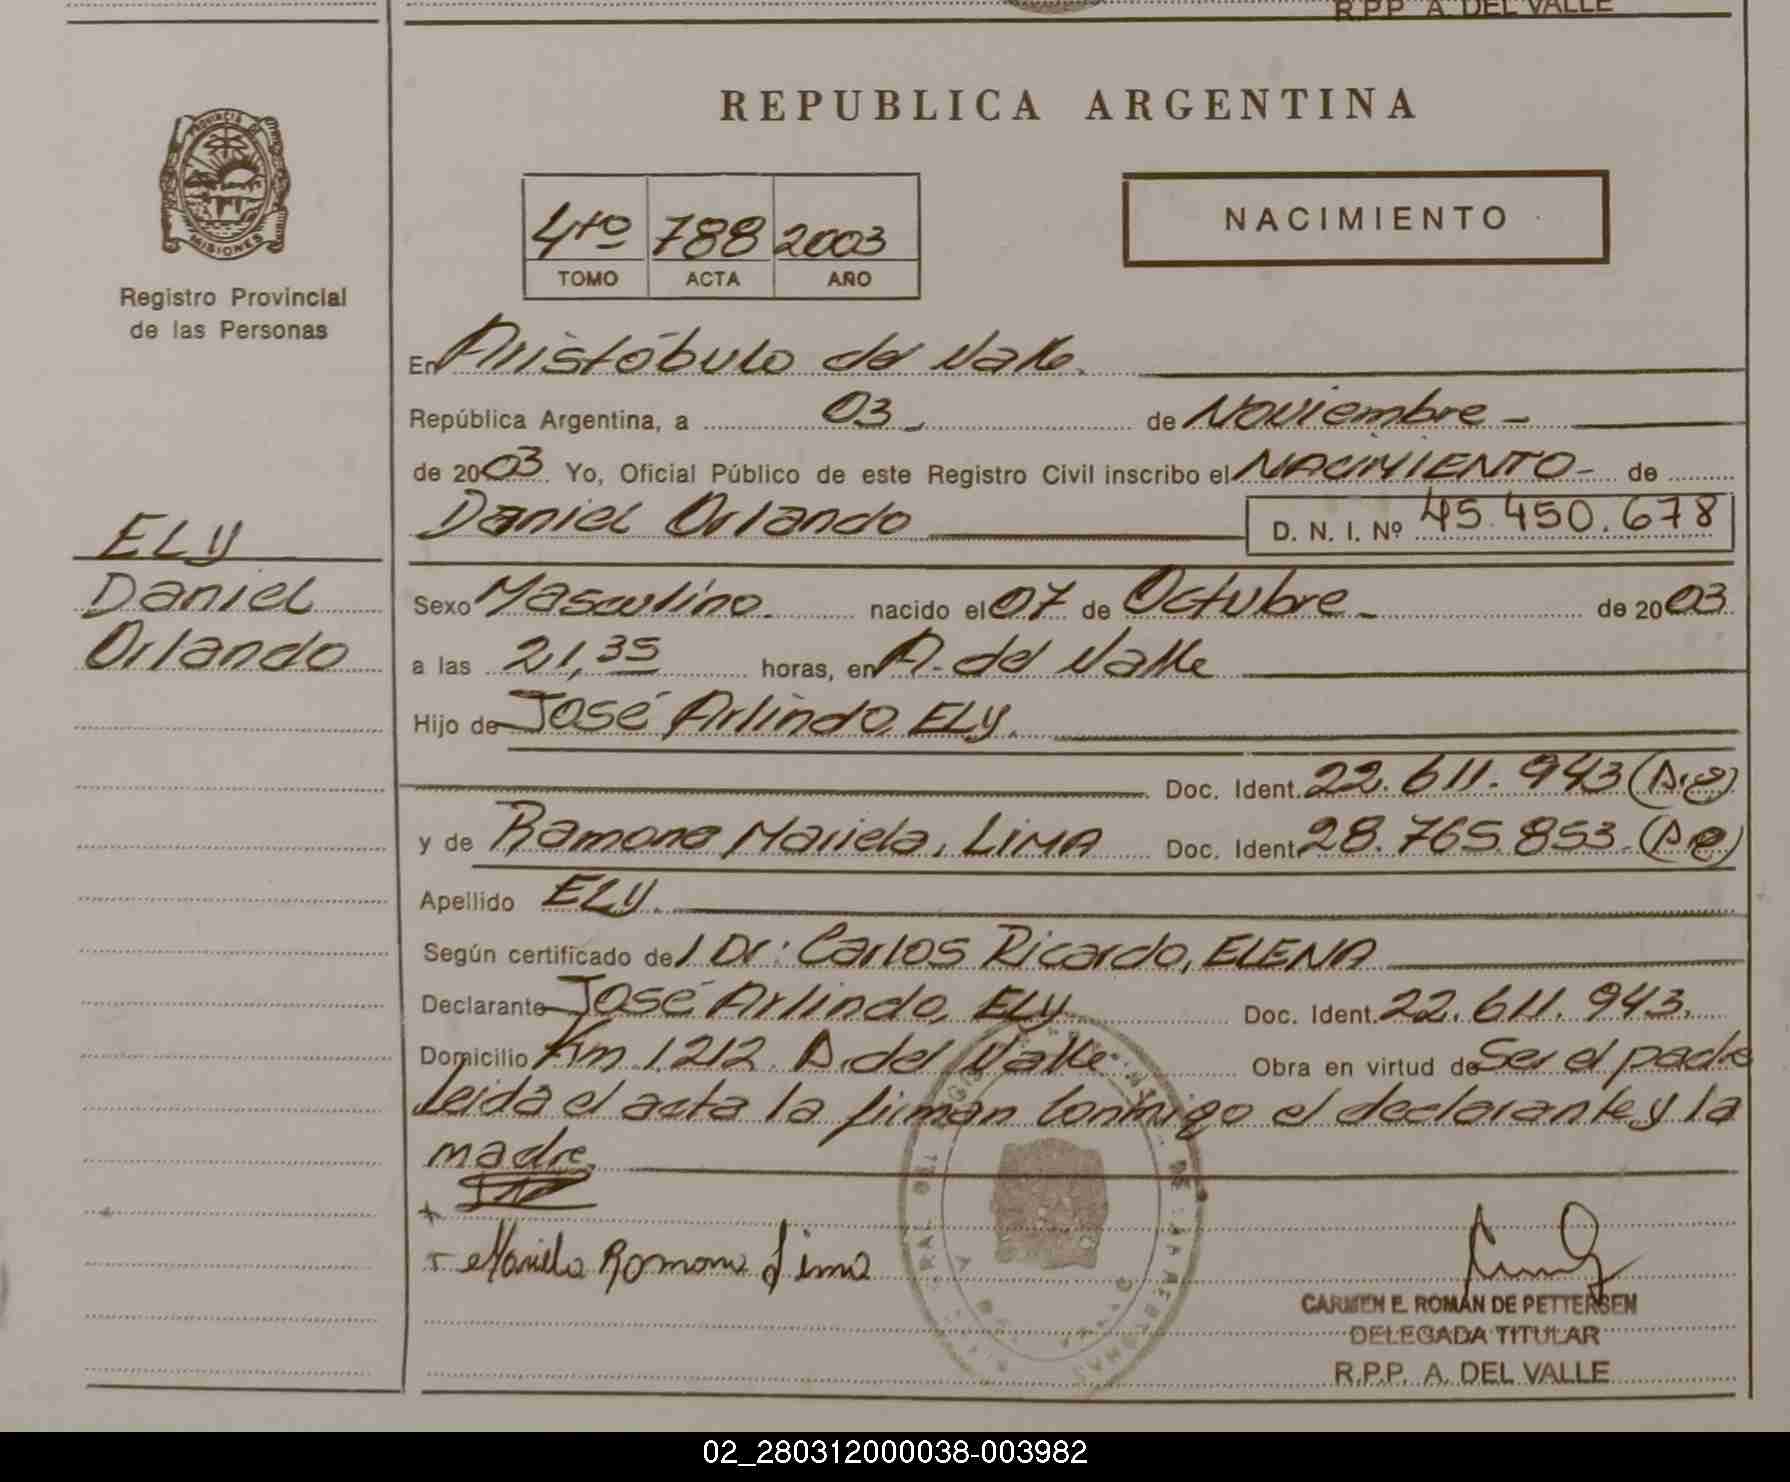 R.P.P. A. DEL VALLE
REPUBLICA ARGENTINA
PROVINCIA DE
MISIONES
Registro Provincial
de las Personas
4to 788 2003
TOMO ACTA AÑO
NACIMIENTO
En Aristóbulo del Valle.
República Argentina, a 03 de Noviembre
de 2003 Yo, Oficial Público de este Registro Civil inscribo el NACIMIENTO de
Daniel Orlando D. N. I. Nº 45.450.678
ELY
Daniel
Orlando
Sexo Masculino. nacido el 07 de Octubre de 2003
a las 21,35 horas, en A. del Valle
Hijo de José Arlindo ELY.
Doc. Ident. 22.611.943
y de Ramona Mariela, LIMA Doc. Ident. 28.765.853
Apellido ELY.
Según certificado del Dr: Carlos Ricardo, ELENA
Declarante José Arlindo, ELY Doc. Ident. 22.611.943.
Domicilio Km 1212 A. del Valle Obra en virtud de Ser el padre
Leida el acta la firman conmigo el declarante y la
madre.
Mariela Romona Lima
CARMEN E. ROMÁN DE PETTERSEN
DELEGADA TITULAR
R.P.P. A. DEL VALLE
02_280312000038-003982